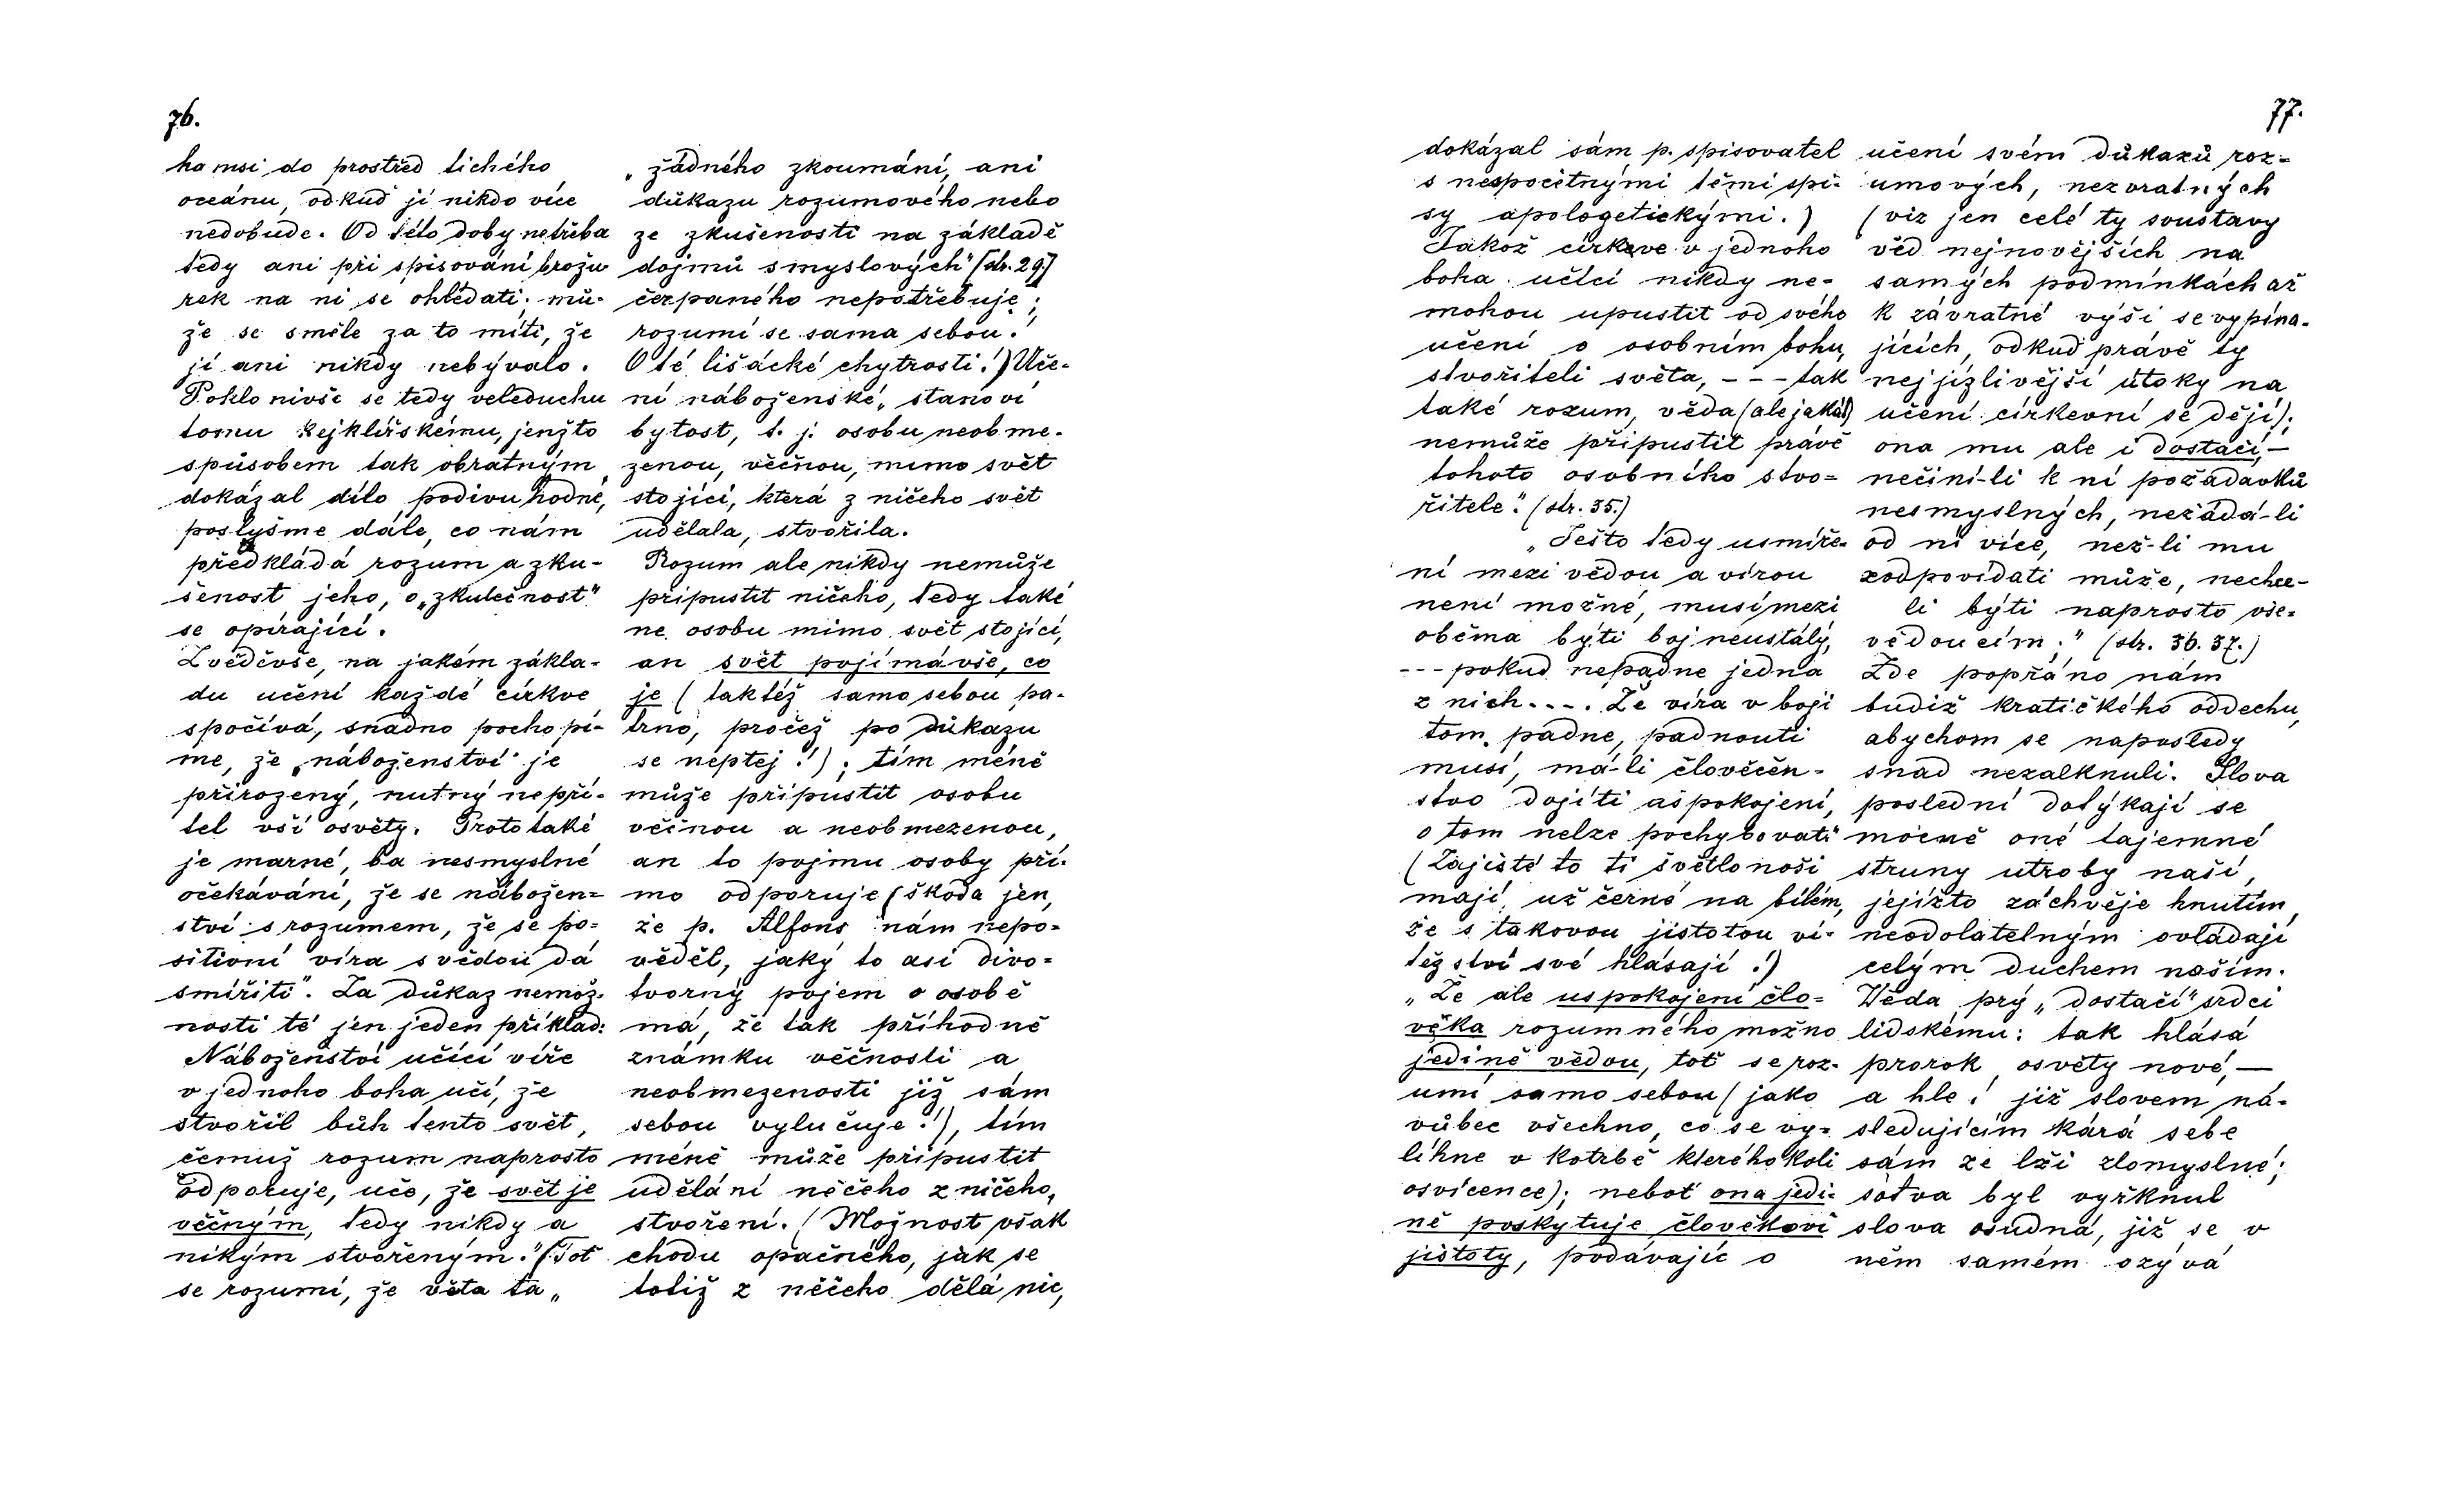 76.
hamsi do prostřed tichého
oceánu, odkud jí nikdo více
nedobude. Od této doby netřeba
tedy ani při spisování brožu
rek na ni se ohlédati; mů-
že se směle za to míti, že
jí ani nikdy nebývalo.
Poklonivše se tedy veleduchu
tomu kejklířskému, jenžto
spůsobem tak obratným
dokázal dílo podivuhodné,
poslyšme dále, co nám
předkládá rozum a zku-
šenost jeho, o „zkutečnost"
se opírající.
Zvěděvše, na jakém zákla-
du učení každé církve
spočívá, snadno pochopí-
me, že „náboženství je
přirozený, nutný nepří-
tel vší osvěty. Proto také
je marné, ba nesmyslné
očekávání, že se nábožen-
ství s rozumem, že se po-
sitivní víra s vědou dá
smířiti". Za důkaz nemož-
nosti té jen jeden příklad:
Náboženství učící víře
v jednoho boha učí, že
stvořil bůh tento svět,
čemuž rozum naprosto
odporuje, uče, že svět je
věčným, tedy nikdy a
nikým stvořeným." (Toť
se rozumí, že věta ta „
„žádného zkoumání, ani
důkazu rozumového nebo
ze zkušenosti na základě
dojmů smyslových" (str. 29)
čerpaného nepotřebuje;
rozumí se sama sebou!
O té lišácké chytrosti!) Uče-
ní náboženské „stanoví
bytost, t. j. osobu neobme-
zenou, věčnou, mimo svět
stojící, která z ničeho svět
udělala, stvořila.
Rozum ale nikdy nemůže
připustit ničeho, tedy také
ne osobu mimo svět stojící,
an svět pojímá vše, co
je (taktéž samo sebou pa-
trno, pročež po důkazu
se neptej!); tím méně
může připustit osobu
věčnou a neobmezenou,
an to pojmu osoby pří-
mo odporuje (škoda jen,
že p. Alfons nám nepo-
věděl, jaký to asi divo-
tvorný pojem o osobě
má, že tak příhodně
známku věčnosti a
neobmezenosti již sám
sebou vylučuje!), tím
méně může připustit
udělání něčeho z ničeho,
stvoření. (Možnost však
chodu opačného, jak se
totiž z něčeho dělá nic,
77.
dokázal sám p. spisovatel
s nespočetnými těmi spi-
sy apologetickými.)
Jakož církve v jednoho
boha učící nikdy ne-
mohou upustit od svého
učení o osobním bohu,
stvořiteli světa, - - - tak
také rozum, věda (ale jaká!)
nemůže připustit právě
tohoto osobního stvo-
řitele." (str. 35.)
„Ješto tedy usmíře-
ní mezi vědou a vírou
není možné, musí mezi
oběma býti boj neustálý,
- - - pokud nepadne jedna
z nich - - -. Že víra v boji
tom padne, padnouti
musí, má-li člověčen-
stvo dojíti aspokojení,
o tom nelze pochybovati"
(Zajisté to ti světlonoši
mají už černé na bílém,
že s takovou jistotou ví-
tězství své hlásají!)
„Že ale uspokojení člo-
věka rozumného možno
jedině vědou, toť se roz-
umí samo sebou (jako
vůbec všechno, co se vy-
líhne v kotrbě kteréhokoli
osvícence); neboť ona jedi-
ně poskytuje člověkovi
jistoty, podávajíc o
učení svém důkazů roz-
umových, nezvratných
(viz jen celé ty soustavy
věd nejnovějších na
samých podmínkách až
k závratné výši se vypína-
jících, odkud právě ty
nejjízlivější útoky na
učení církevní se dějí);
ona mu ale i dostačí, —
nečiní-li k ní požádavků
nesmyslných, nežádá-li
od ní více, než-li mu
zodpovídati může, nechce-
li býti naprosto vše-
vědoucím;" (str. 36. 37.)
Zde popřáno nám
budiž kratičkého oddechu,
abychom se naposledy
snad nezalknuli. Slova
poslední dotýkají se
mocně oné tajemné
struny útroby naší,
jejížto záchvěje hnutím
neodolatelným ovládají
celým duchem naším.
Věda prý „dostačí" srdci
lidskému: tak hlásá
prorok osvěty nové, —
a hle! již slovem ná-
sledujícím kárá sebe
sám ze lži zlomyslné;
sotva byl vyřknul
slova osudná, již se v
něm samém ozývá